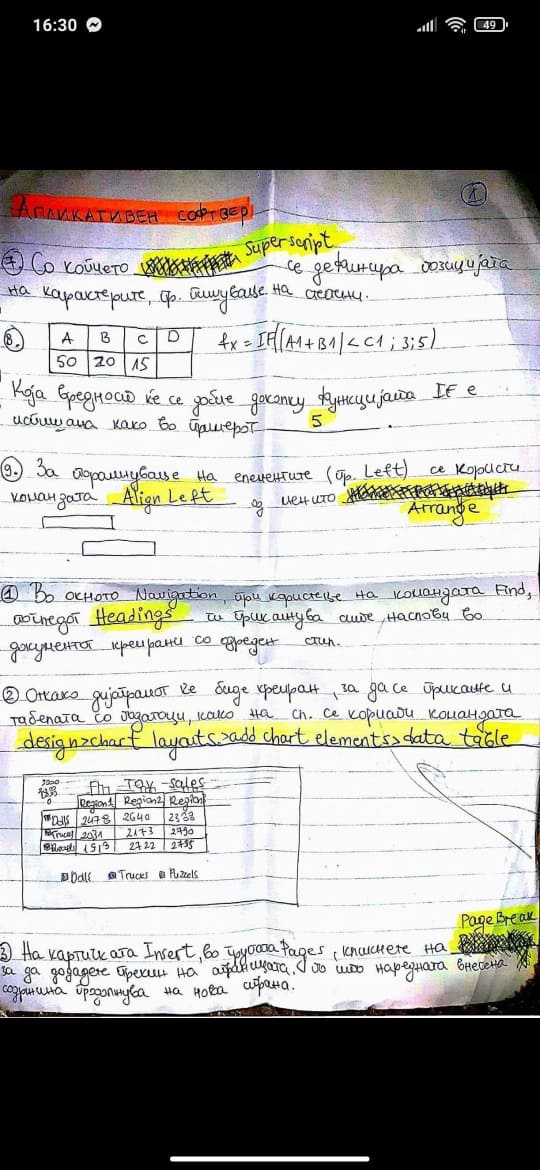 16:30
49
1
АПЛИКАТИВЕН СОФТВЕР
Superscript
7. Со копчето се дефинира позицијата
на карактерите, пр. пишување на степени.
8. A B C D fx = IF(A1+B1<C1;3;5)
50 20 15
Која вредност ќе се добие доколку функцијата IF е
испишана како во примерот 5.
9. За порамнување на елементите (пр. Left) се користи
командата Align Left од менито
Arrange
1 Во окното Navigation, при користење на командата Find,
погледот Headings ги прикажува сите наслови во
документот креирани со одреден стил.
2 Откако дијаграмот ќе биде креиран, за да се прикаже и
табелата со податоци, како на сл. се користи командата
design>chart layouts>add chart elements>data table
Toy Sales
Region1 Region2 Region
Dolls 2478 2640 2333
Trucks 2031 2173 2790
1513 2722 2795
Dolls Trucks Puzzels
Page Break
3 На картичката Insert, во групата Pages, кликнете на
за да додадете прекин на страницата, по што наредната внесена
содржина продолжува на нова страна.